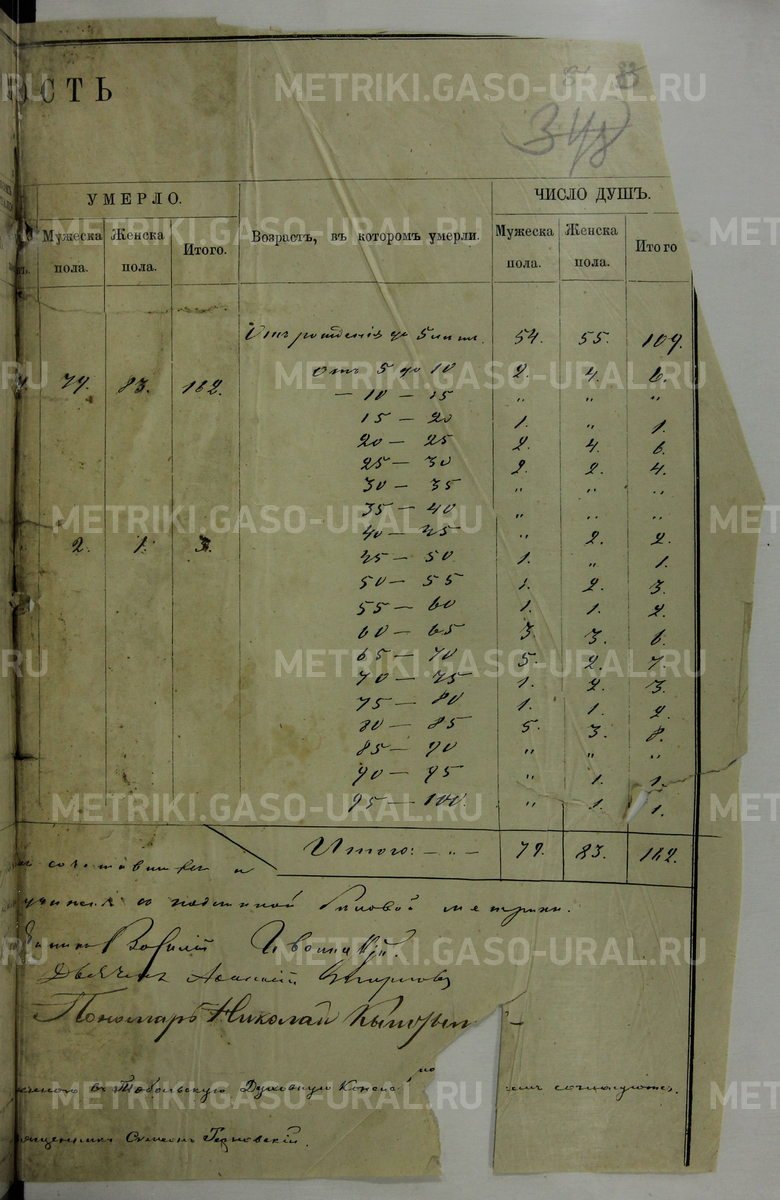 ОСТЬ
348
УМЕРЛО. ЧИСЛО ДУШЪ.
Мужеска пола. Женска пола. Итого. Возрастъ, въ которомъ умерли. Мужеска пола. Женска пола. Итого
Отъ рожденія до 5 лѣтъ. 54. 55. 109.
79. 83. 162. Отъ 5 до 10 2. 4. 6.
— 10 — 15 " " "
15 — 20 1. " 1.
20 — 25 2. 4. 6.
25 — 30 2. 2. 4.
30 — 35 " " "
35 — 40 " " "
2. 1. 3. 40 — 45 " 2. 2.
45 — 50 1. " 1.
50 — 55 1. 2. 3.
55 — 60 1. 1. 2.
60 — 65 3. 3. 6.
65 — 70 5. 2. 7.
70 — 75 1. 2. 3.
75 — 80 1. 1. 2.
80 — 85 5. 3. 8.
85 — 90 " " "
90 — 95 " 1. 1.
95 — 100. " 1. 1.
Итого: — " — 79. 83. 162.
съ подлинной метрики.
Василій
Дьячекъ
Пономарь Николай
въ Тобольскую Духовную
Симеонъ
METRIKI.GASO-URAL.RU